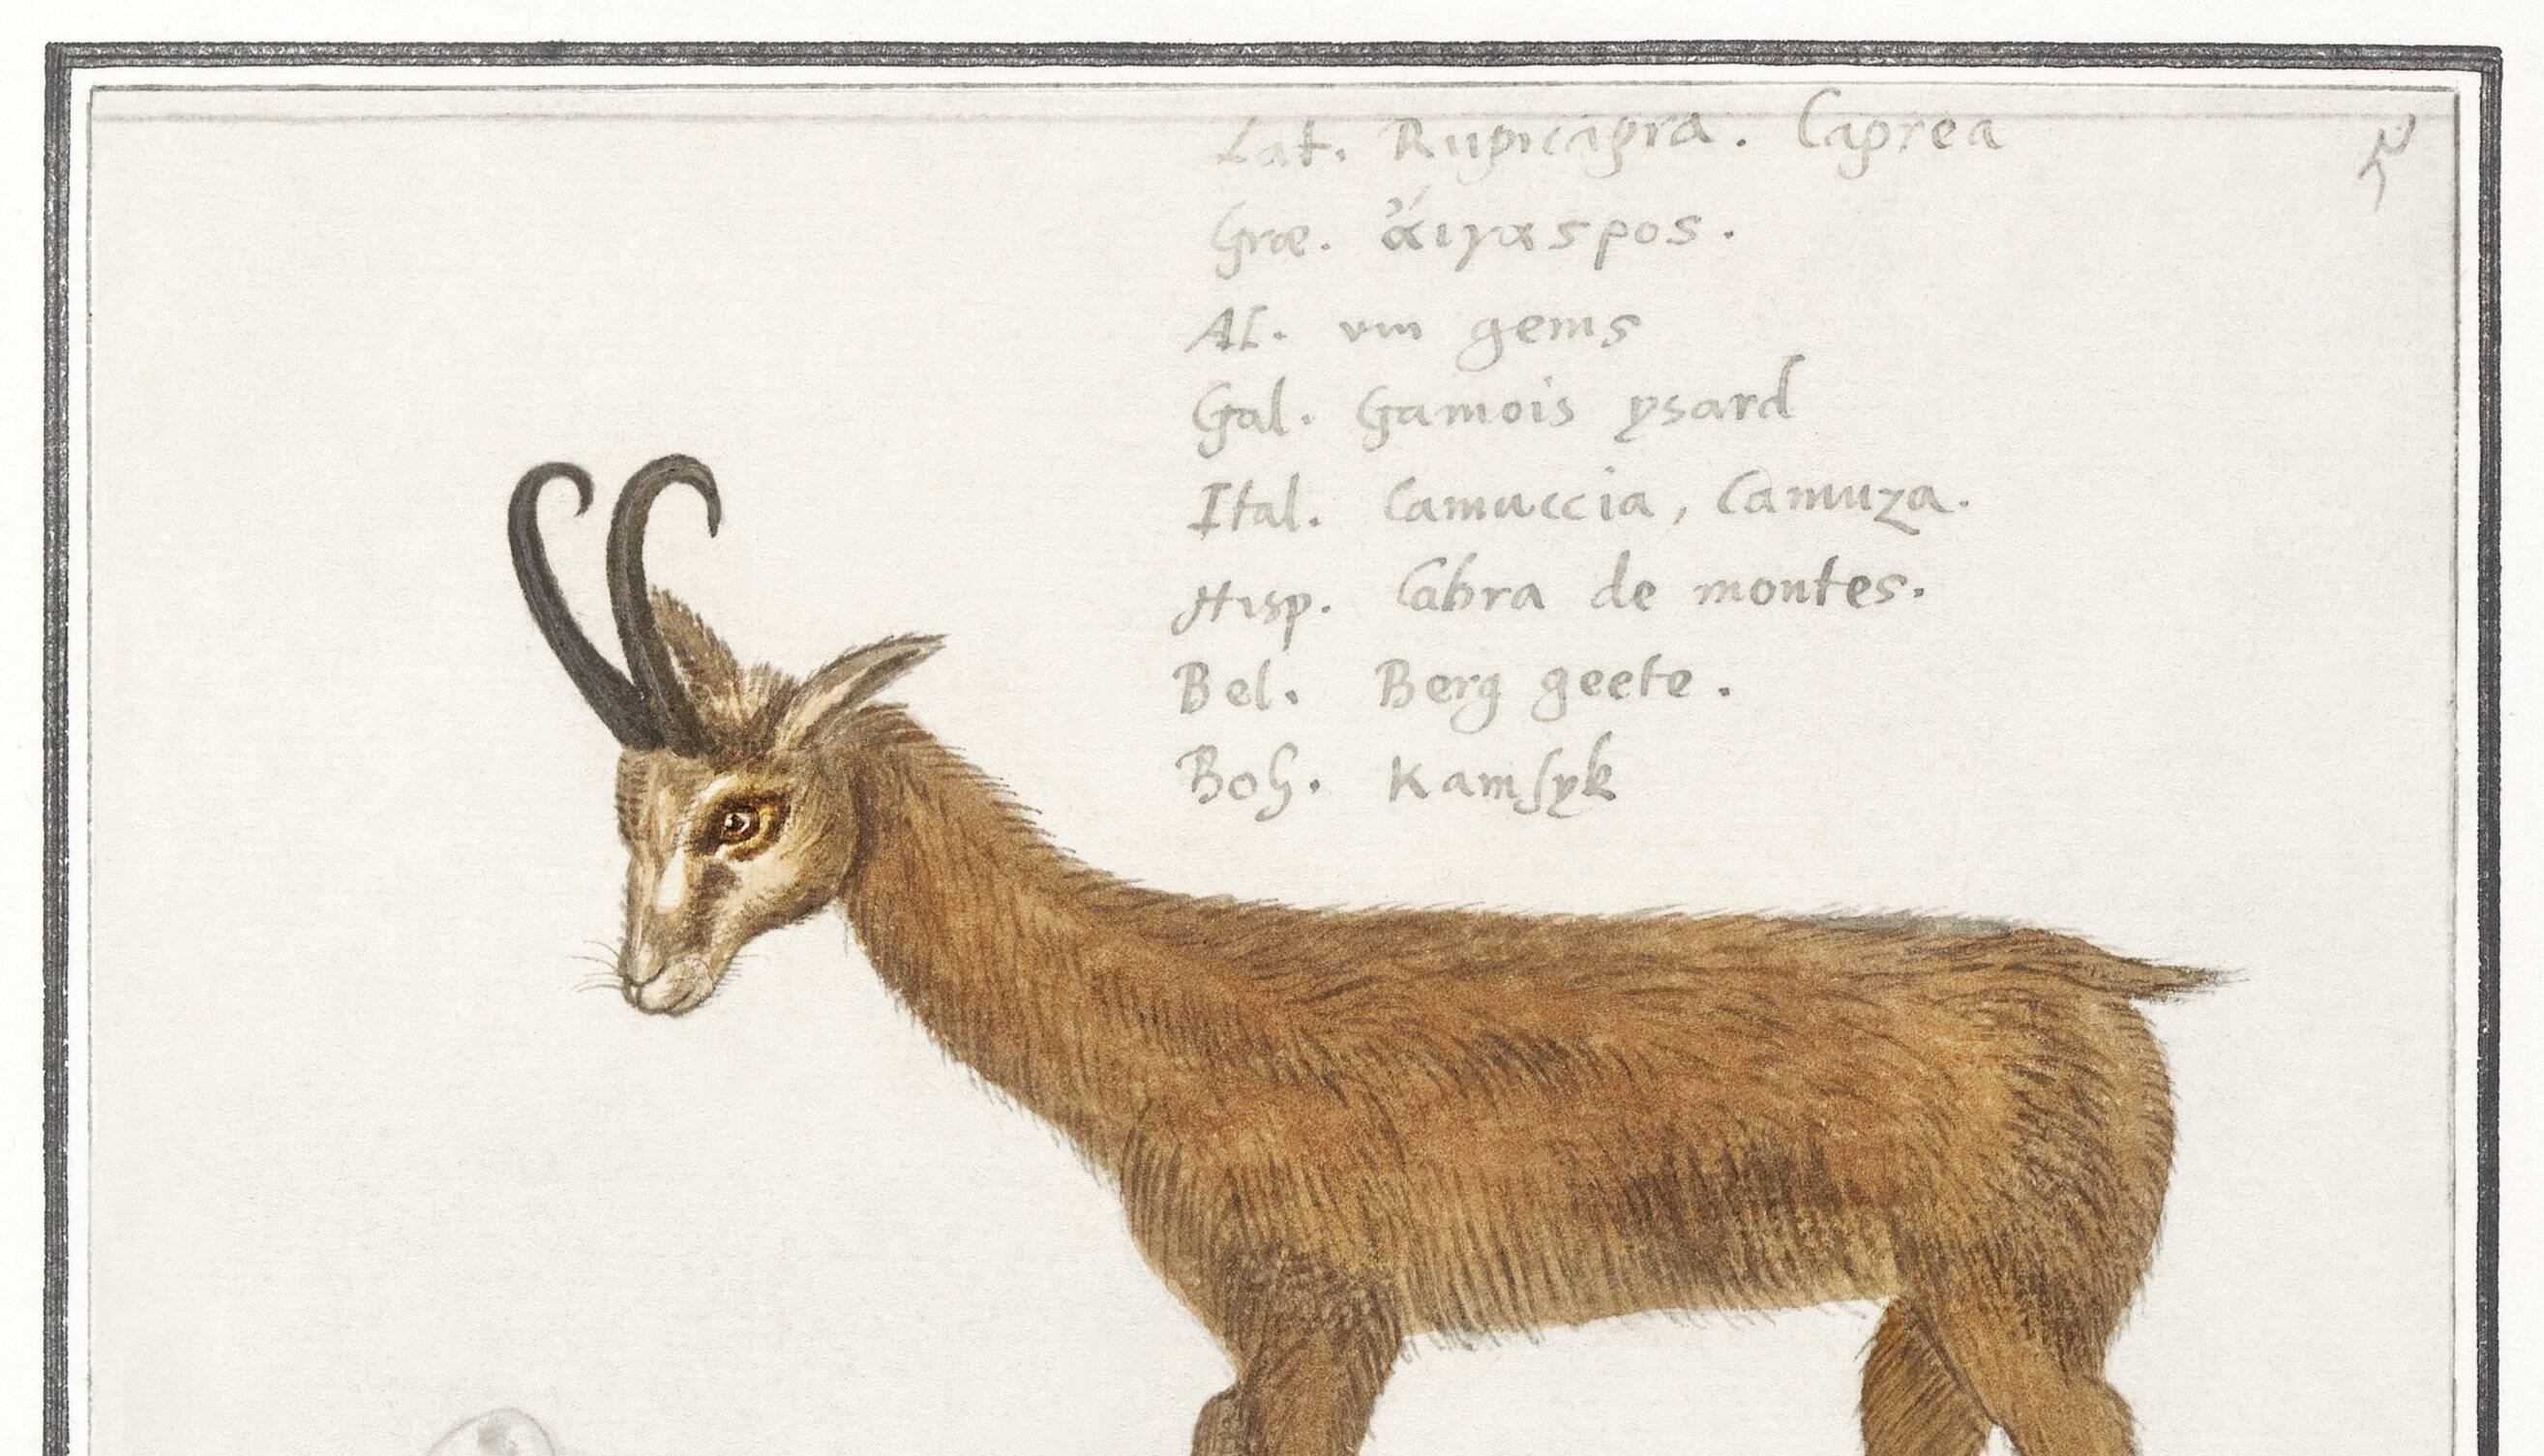 Lat. Rupicapra. Caprea
Græ. ἄιγασρος.
Al. vin gems
Gal. Gamois ysard
Ital. Camuccia, Camuza.
Hisp. Cabra de montes.
Bel. Berg geete.
Boh. Kamſyk